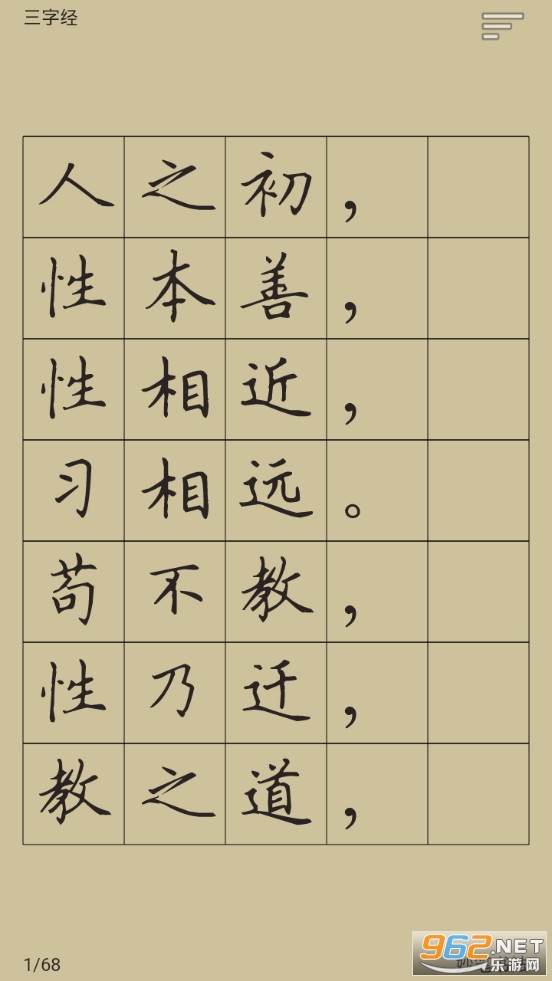 三字经
人之初，
性本善，
性相近，
习相远。
苟不教，
性乃迁，
教之道，
1/68
962.NET
乐游网